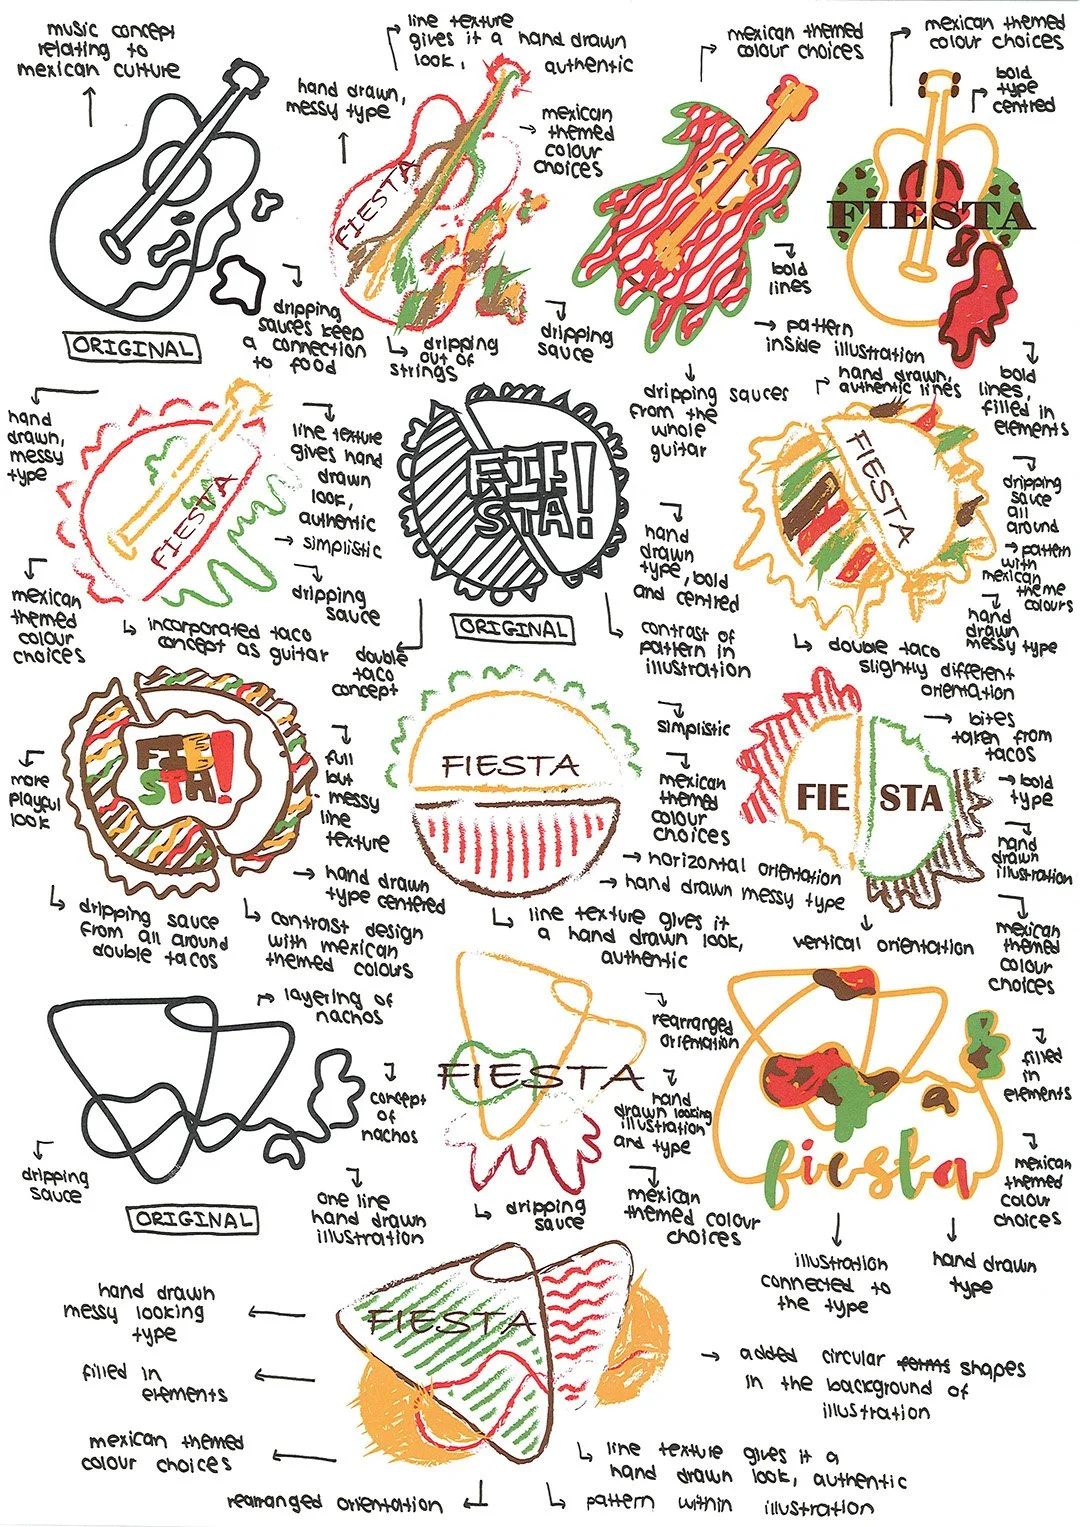 music concept
relating to
mexican culture
line texture
gives it a hand drawn
look, authentic
hand drawn,
messy type
mexican
themed
colour
choices
mexican themed
colour choices
mexican themed
colour choices
bold
type
centred
FIESTA
FIESTA
ORIGINAL
dripping
sauces keep
a connection
to food
dripping
out of
strings
dripping
sauce
bold
lines
pattern
inside illustration
dripping sauces
from the
whole
guitar
bold
lines,
filled in
elements
hand
drawn,
messy
type
FIESTA
line texture
gives hand
drawn
look,
authentic
simplistic
dripping
sauce
mexican
themed
colour
choices
incorporated taco
concept as guitar
FIE
STA!
ORIGINAL
double
taco
concept
hand
drawn
type, bold
and centred
contrast of
pattern in
illustration
hand drawn,
authentic lines
FIESTA
dripping
sauce
all
around
pattern
with
mexican
theme
colours
hand
drawn
messy type
double taco
slightly different
orientation
more
playful
look
FIE
STA!
full
but
messy
line
texture
hand drawn
type centered
dripping sauce
from all around
double tacos
contrast design
with mexican
themed colours
FIESTA
simplistic
mexican
themed
colour
choices
horizontal orientation
hand drawn messy type
line texture gives it
a hand drawn look,
authentic
FIE STA
bites
taken from
tacos
bold
type
hand
drawn
illustration
vertical orientation
mexican
themed
colour
choices
layering of
nachos
concept
of
nachos
dripping
sauce
ORIGINAL
one line
hand drawn
illustration
FIESTA
rearranged
orientation
hand
drawn looking
illustration
and type
dripping
sauce
mexican
themed colour
choices
fiesta
filled
in
elements
mexican
themed
colour
choices
illustration
connected to
the type
hand drawn
type
hand drawn
messy looking
type
filled in
elements
mexican themed
colour choices
rearranged orientation
FIESTA
added circular forms shapes
in the background of
illustration
line texture gives it a
hand drawn look, authentic
pattern within illustration